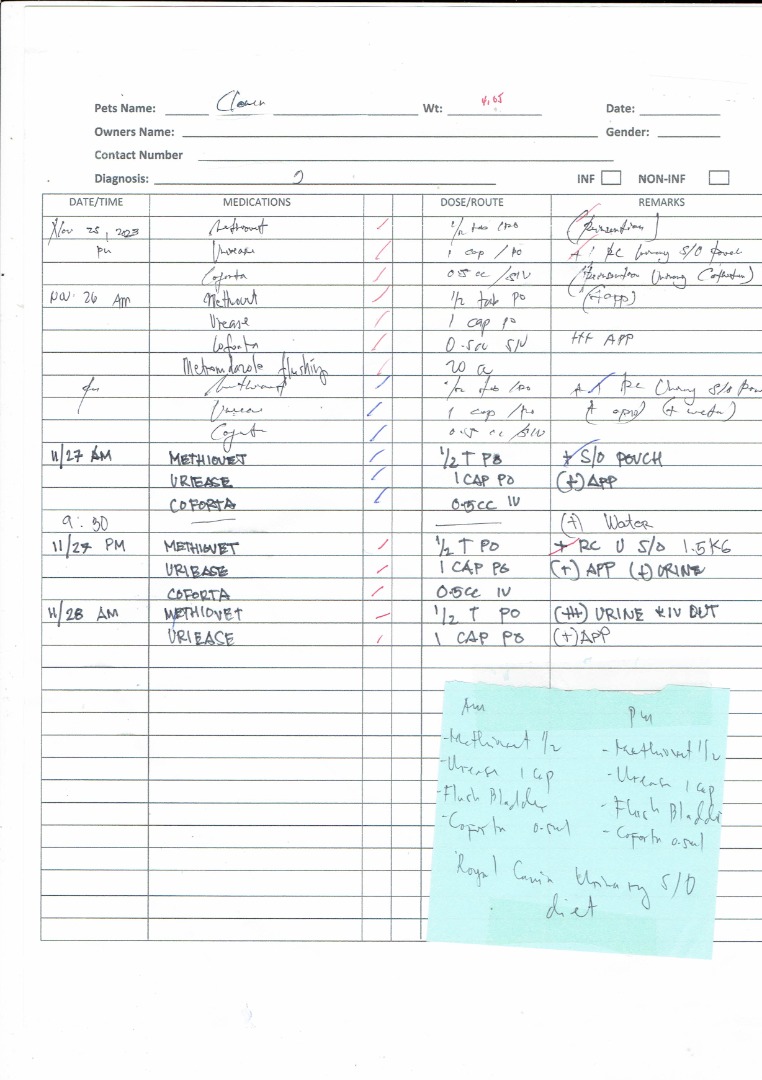 Pets Name: Wt: 4.65 Date:
Owners Name: Gender:
Contact Number
Diagnosis: INF NON-INF
DATE/TIME MEDICATIONS DOSE/ROUTE REMARKS
Nov 25, 2023 Methiovet 1/2 tab /PO
PM 1 cap /PO RC Urinary S/O Pouch
Coforta 0.5 cc /SIV
Nov. 26 AM Methiovet 1/2 tab PO (+app)
Urease 1 cap PO
Coforta 0.5cc SIV +++ APP
Metronidazole flushing 20 cc
1/2 tab /PO RC Urinary S/O
1 cap /PO
0.5 cc /SIV
11/27 AM METHIOVET 1/2 T PO + S/O POUCH
URIEASE 1 CAP PO (+) APP
COFORTA 0.5cc IV
9:30 (+) Water
11/27 PM METHIOVET 1/2 T PO + RC U S/O 1.5KG
URIEASE 1 CAP PO (+) APP (+) URINE
COFORTA 0.5cc IV
11/28 AM METHIOVET 1/2 T PO (++) URINE *IV OUT
URIEASE 1 CAP PO (+) APP
Am Pm
-Methiovet 1/2 - Methiovet 1/2
-Urease 1 cap - Urease 1 cap
-Flush Bladder - Flush Bladder
-Coforta 0.5ml - Coforta 0.5ml
Royal Canin Urinary S/O
diet